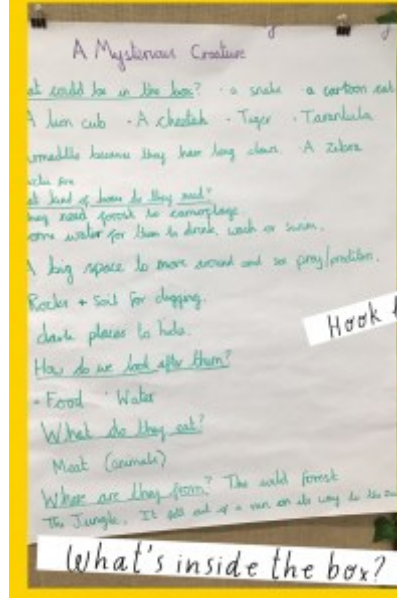 A Mysterious Creature
could be in the box? · a snake · a cartoon cat
A lion cub · A cheetah · Tiger · Tarantula
because they have long claws. · A zebra
kind of home do they need?
need forest to camoflage.
some water for them to drink, wash or swim.
A big space to move around and see prey/predators.
Rocks + soil for digging.
dark places to hide.
Hook
How do we look after them?
· Food · Water
What do they eat?
Meat (animals)
Where are they from? The wild forest
The Jungle. It fell out of a van on its way to the
What's inside the box?